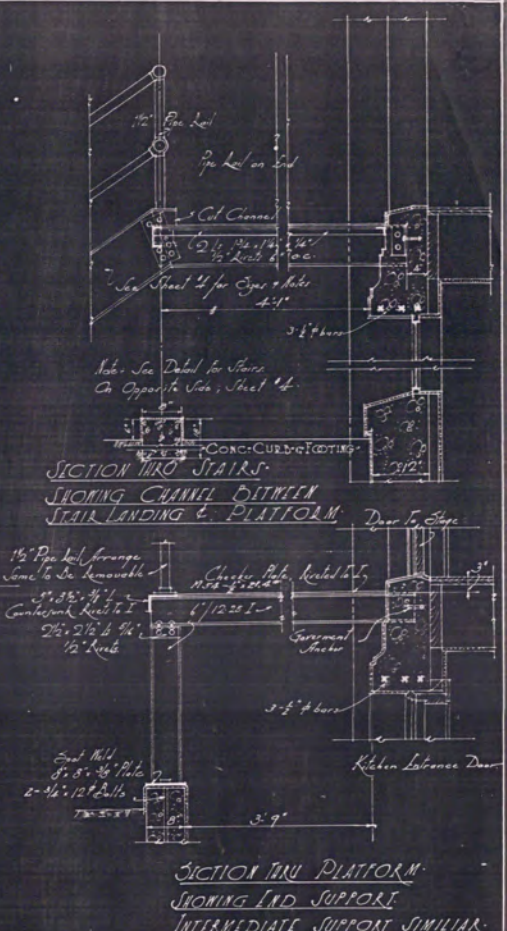 1½" Pipe Rail
Pipe Rail on End
Cut Channel
2 Ls 1¾ x 1¼ x ¼"
½" Rivets 6" o.c.
See Sheet #4 for Sizes & Notes
4'-1"
3-½" ϕ bars
Note - See Detail for Stairs
On Opposite Side; Sheet #4.
8"
CONC. CURB & FOOTING
12"
SECTION THRO STAIRS.
SHOWING CHANNEL BETWEEN
STAIR LANDING & PLATFORM
Door To Stage
1½" Pipe Rail, Arrange
Same to Be Removable
Checker Plate, Riveted to I
3"
Countersunk Rivet To I
6"/12.25 I
Goverment
Anchor
½" Rivets
3-½" ϕ bars
Kitchen Entrance Door
Spot Weld
8" x 8" x 3/8" Plate
2-3/4" x 12" Bolts
8"
3'-9"
SECTION THRU PLATFORM.
SHOWING END SUPPORT.
INTERMEDIATE SUPPORT SIMILIAR.